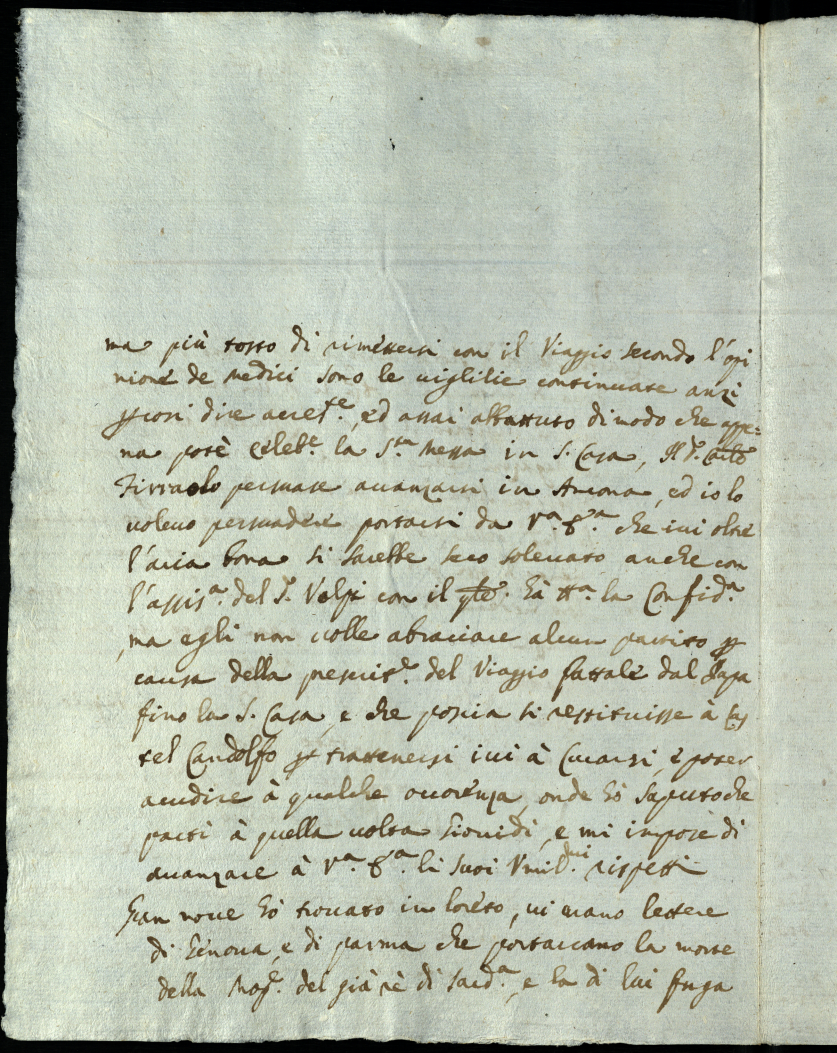 ma più tosto di rimettersi con il Viaggio secondo l'opi
nione de Medici sono le vigilie continuate anzi
per cosi dire accres.te, ed assai abbattuto di modo che appe=
na potè celeb.e la S.ta Messa in S. Casa, Il S.r
persuase avanzarsi in Ancona, ed io lo
volevo persuadere portarsi da V.a E.a che ivi oltre
l'aria bona si sarebbe seco solevato anche con
l'assis.a del S.r Volpi con il hà tt.a la Confid.a
, ma egli non volle abraciare alcun partito per
causa della del Viaggio fattale dal Papa
fino la S. Casa, e che poscia si restituisse à Cas
tel Candolfo per trattenersi ivi à Curarsi, e poter
acudire à qualche occorenza, onde hò saputo che
parti à quella volta Giovidi, e mi impose di
avanzare à V.a E.a li suoi Vmil.mi rispetti
Gran nove hò trovato in loreto, vi erano lettere
di Genova, e di parma che portavano la morte
della Maes.a del già rè di Sard.a, e la di lui fuga